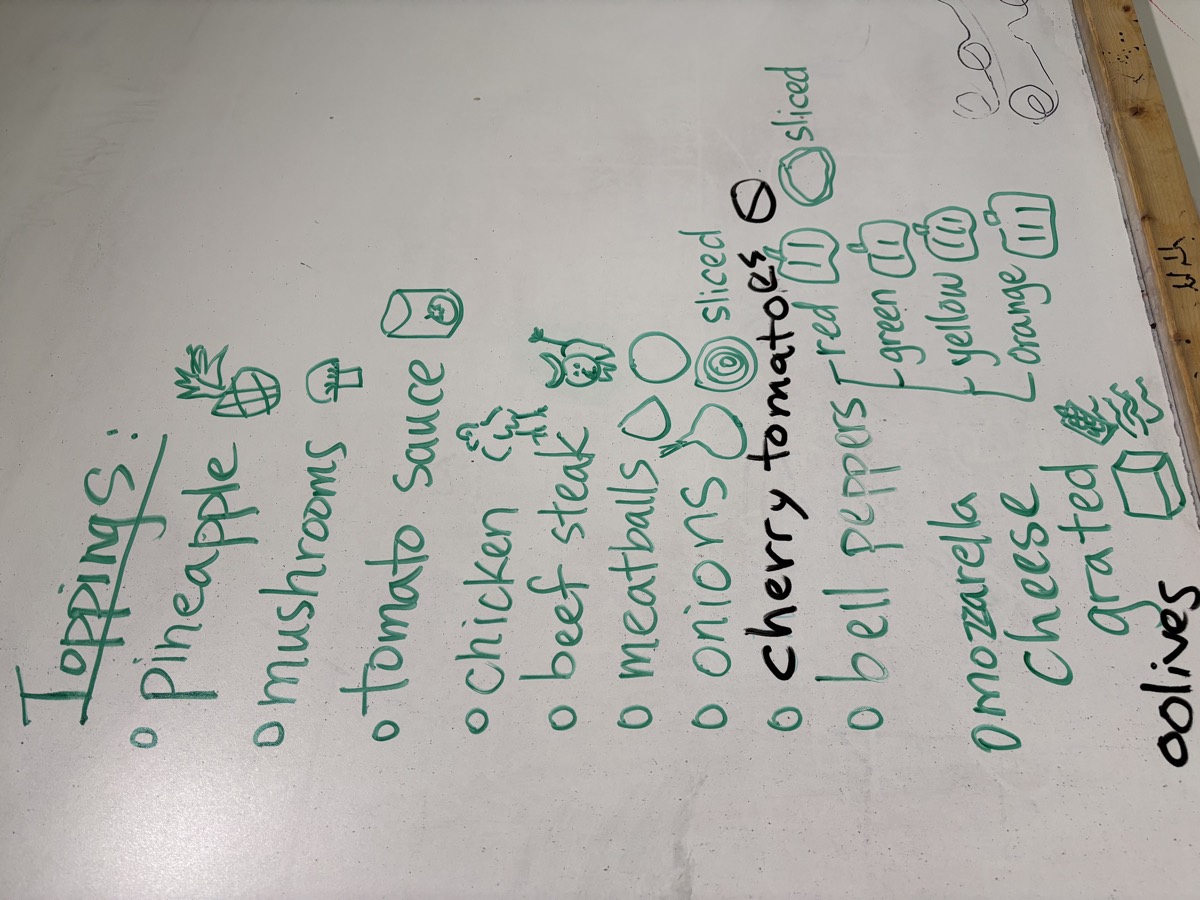 Toppings:
o Pineapple
o mushrooms
o tomato sauce
o chicken
o beef steak
o meatballs
o onions sliced
o cherry tomatoes
o bell peppers red sliced
green
yellow
orange
o mozzarella
cheese
grated
o olives